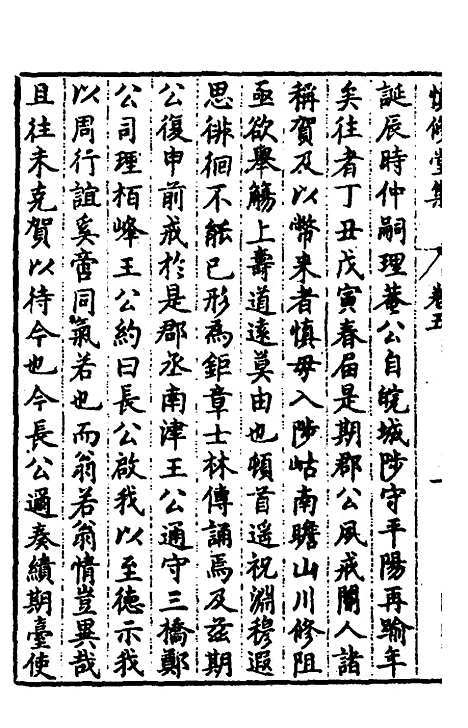 慎修堂集 卷五
誕辰時仲嗣理菴公自皖城陟守平陽再踰年
矣往者丁丑戊寅春屆是期郡公風戒閽人諸
稱賀及以幣来者慎毋入陟岵南瞻山川修阻
亟欲舉觴上壽道遠莫由也頓首遥祝淵穆遐
思徘徊不能已形為鉅章士林傳誦焉及兹期
公復申前戒於是郡丞南津王公通守三橋鄭
公司理栢峰王公約曰長公啟我以至德示我
以周行誼奚啻同氣若也而翁若翁情豈異哉
且往未克賀以待今也今長公適奏績期臺使